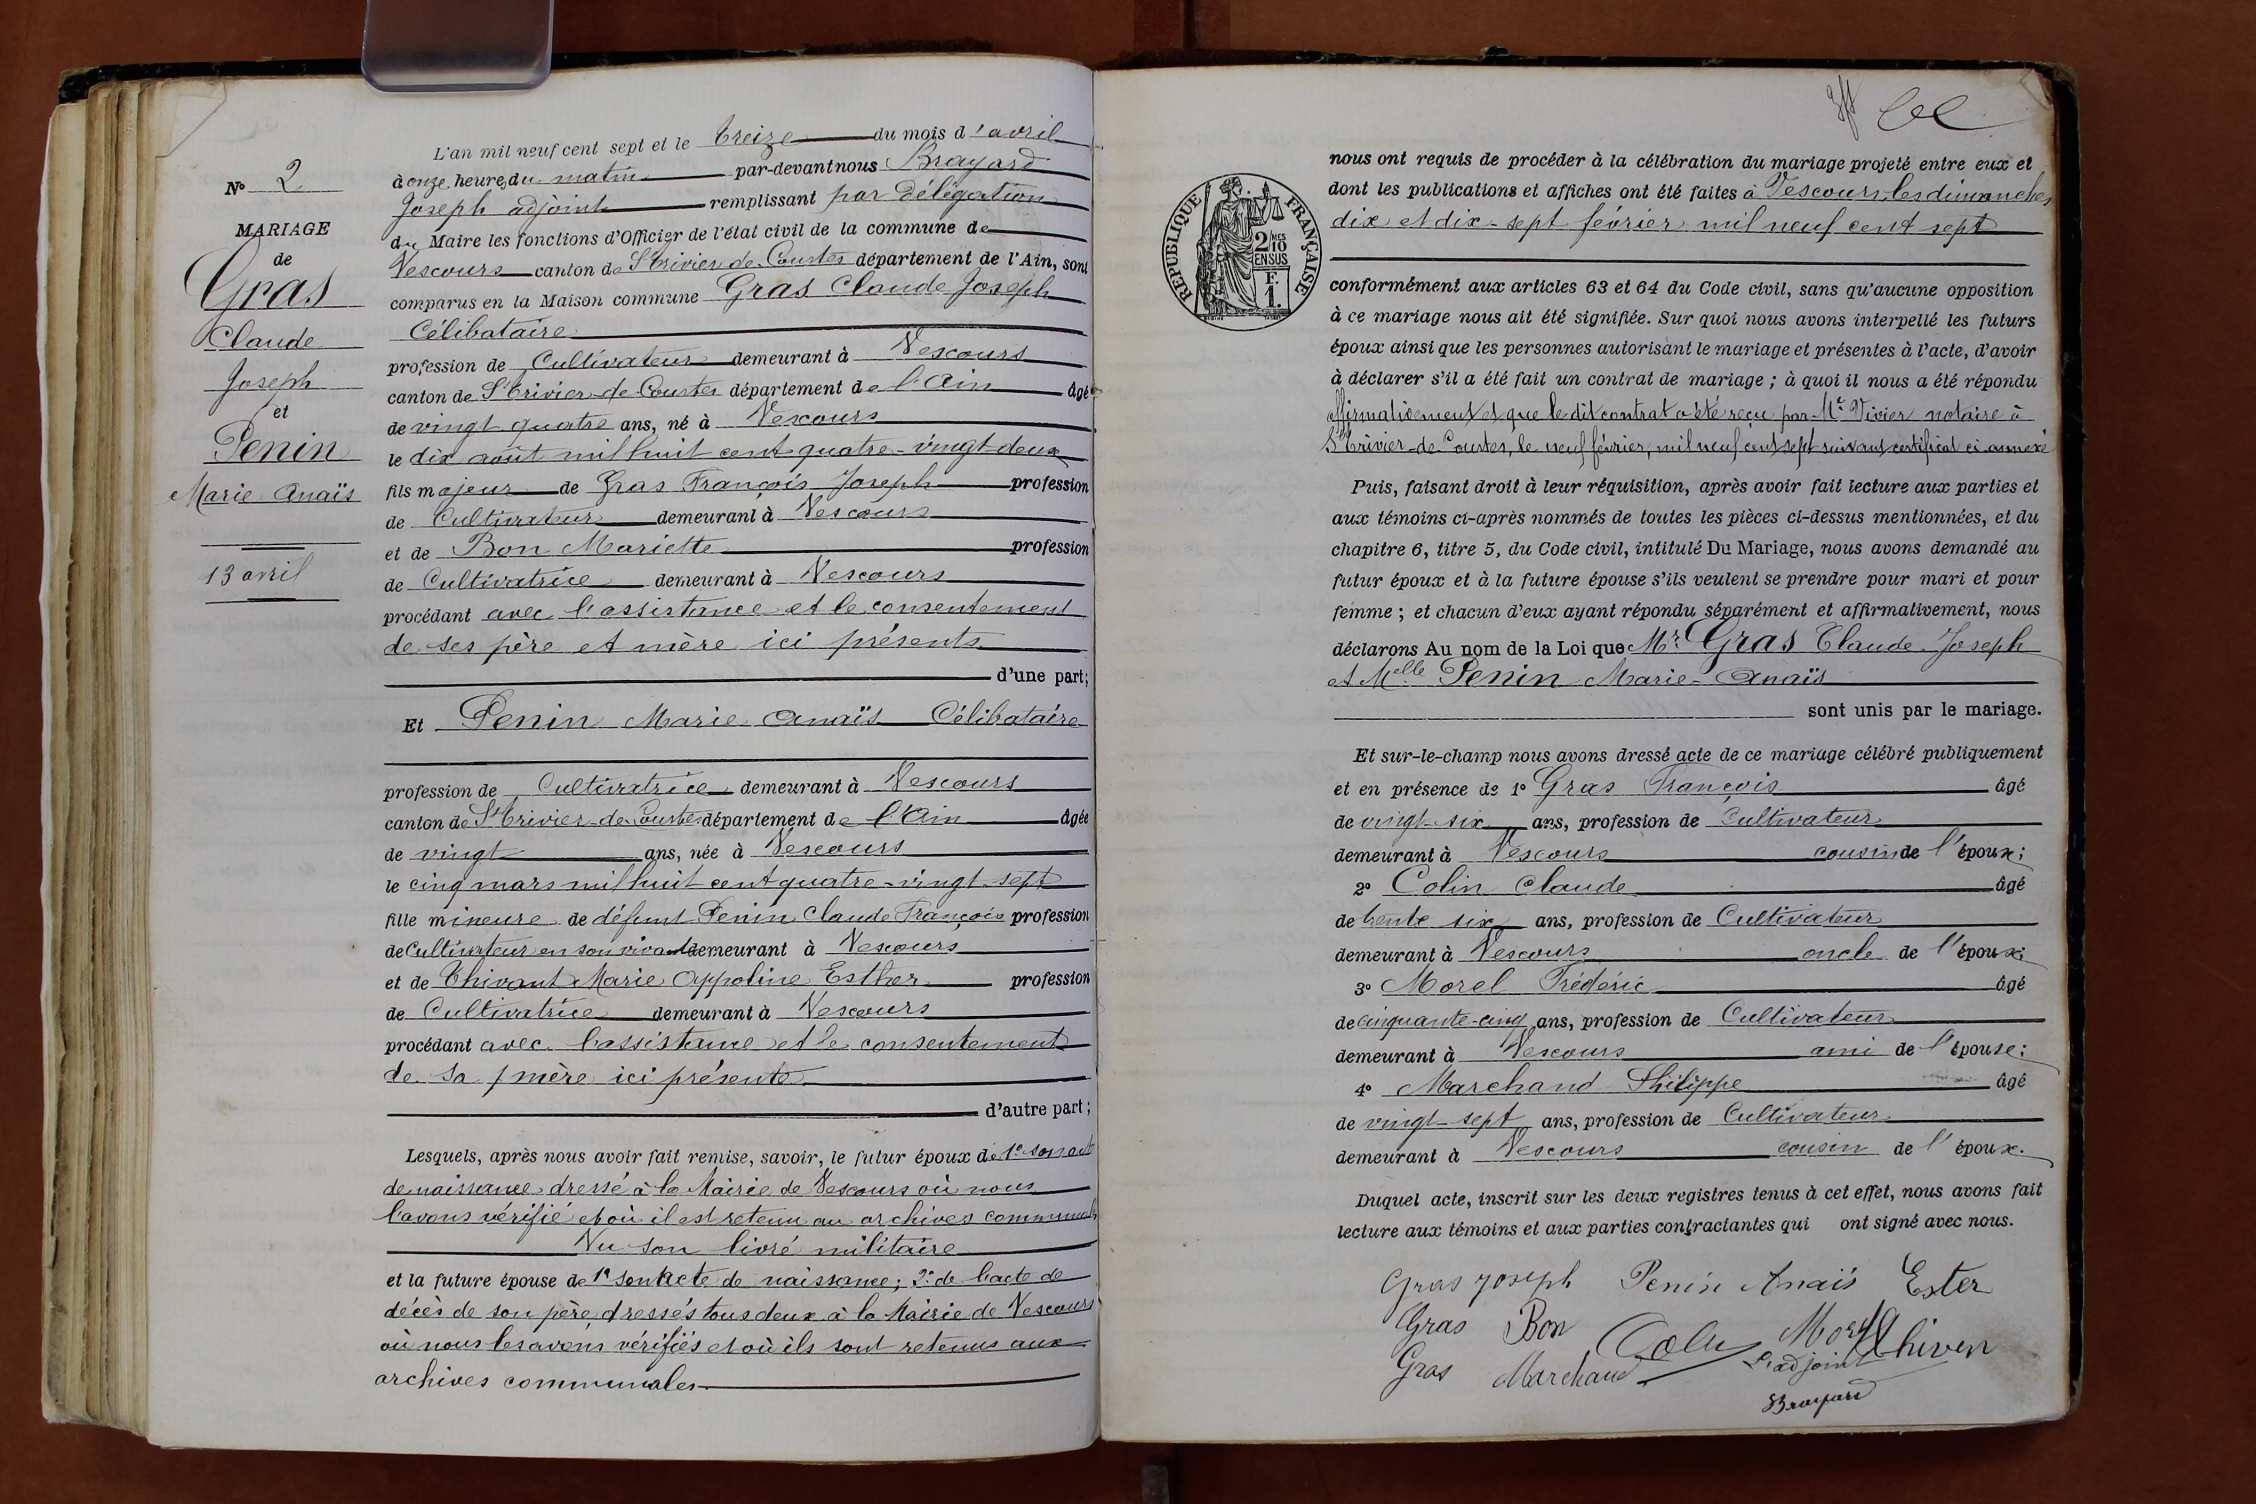 N° 2
MARIAGE
de
Gras
Claude
Joseph
et
Penin
Marie Anaïs
13 avril
L'an mil neuf cent sept et le treize du mois d'avril
à onze heures du matin par-devant nous Brayard
Joseph adjoint remplissant par délégation
du Maire les fonctions d'Officier de l'état civil de la commune de
Vescours canton de St Trivier de Courtes département de l'Ain, sont
comparus en la Maison commune Gras Claude Joseph
Célibataire
profession de Cultivateur demeurant à Vescours
canton de St Trivier-de-Courtes département de l'Ain âgé
de vingt quatre ans, né à Vescours
le dix août mil huit cent quatre-vingt-deux
fils majeur de Gras François Joseph profession
de Cultivateur demeurant à Vescours
et de Bon Mariette profession
de Cultivatrice demeurant à Vescours
procédant avec l'assistance et le consentement
de ses père et mère ici présents
d'une part;
Et Penin Marie Anaïs Célibataire
profession de Cultivatrice demeurant à Vescours
canton de St Trivier-de-Courtes département de l'Ain âgée
de vingt ans, née à Vescours
le cinq mars mil huit cent quatre-vingt-sept
fille mineure de défunt Penin Claude François profession
de Cultivateur en son vivant demeurant à Vescours
et de Thivant Marie Appoline Esther profession
de Cultivatrice demeurant à Vescours
procédant avec l'assistance et le consentement
de sa mère ici présente
d'autre part;
Lesquels, après nous avoir fait remise, savoir, le futur époux de 1° son acte
de naissance dressé à la Mairie de Vescours où nous
l'avons vérifié et où il est retenu au archives communales
Vu son livré militaire
et la future épouse de 1° son acte de naissance; 2° de l'acte de
décès de son père, dressés tous deux à la Mairie de Vescours
où nous les avons vérifiés et où ils sont retenus aux
archives communales.
RÉPUBLIQUE FRANÇAISE
2/10 MES
EN SUS
F.
1.
nous ont requis de procéder à la célébration du mariage projeté entre eux et
dont les publications et affiches ont été faites à Vescours, les dimanches
dix et dix-sept février mil neuf cent sept
conformément aux articles 63 et 64 du Code civil, sans qu'aucune opposition
à ce mariage nous ait été signifiée. Sur quoi nous avons interpellé les futurs
époux ainsi que les personnes autorisant le mariage et présentes à l'acte, d'avoir
à déclarer s'il a été fait un contrat de mariage; à quoi il nous a été répondu
affirmativement et que le dit contrat a été reçu par Me Vivier notaire à
St Trivier-de-Courtes, le neuf février, mil neuf cent sept suivant certificat ci annexé
Puis, faisant droit à leur réquisition, après avoir fait lecture aux parties et
aux témoins ci-après nommés de toutes les pièces ci-dessus mentionnées, et du
chapitre 6, titre 5, du Code civil, intitulé Du Mariage, nous avons demandé au
futur époux et à la future épouse s'ils veulent se prendre pour mari et pour
femme; et chacun d'eux ayant répondu séparément et affirmativement, nous
déclarons Au nom de la Loi que Mr Gras Claude Joseph
et Melle Penin Marie-Anaïs
sont unis par le mariage.
Et sur-le-champ nous avons dressé acte de ce mariage célébré publiquement
et en présence de 1° Gras François âgé
de vingt-six ans, profession de Cultivateur
demeurant à Vescours cousin de l'époux;
2° Colin Claude âgé
de trente six ans, profession de Cultivateur
demeurant à Vescours oncle de l'époux;
3° Morel Frédéric âgé
de cinquante-cinq ans, profession de Cultivateur
demeurant à Vescours ami de l'épouse;
4° Marchand Philippe âgé
de vingt-sept ans, profession de Cultivateur
demeurant à Vescours cousin de l'époux.
Duquel acte, inscrit sur les deux registres tenus à cet effet, nous avons fait
lecture aux témoins et aux parties contractantes qui ont signé avec nous.
Gras Joseph Penin Anaïs Ester
Gras Bon Morel Thiven
Gras Marchand L'adjoint
Brayard